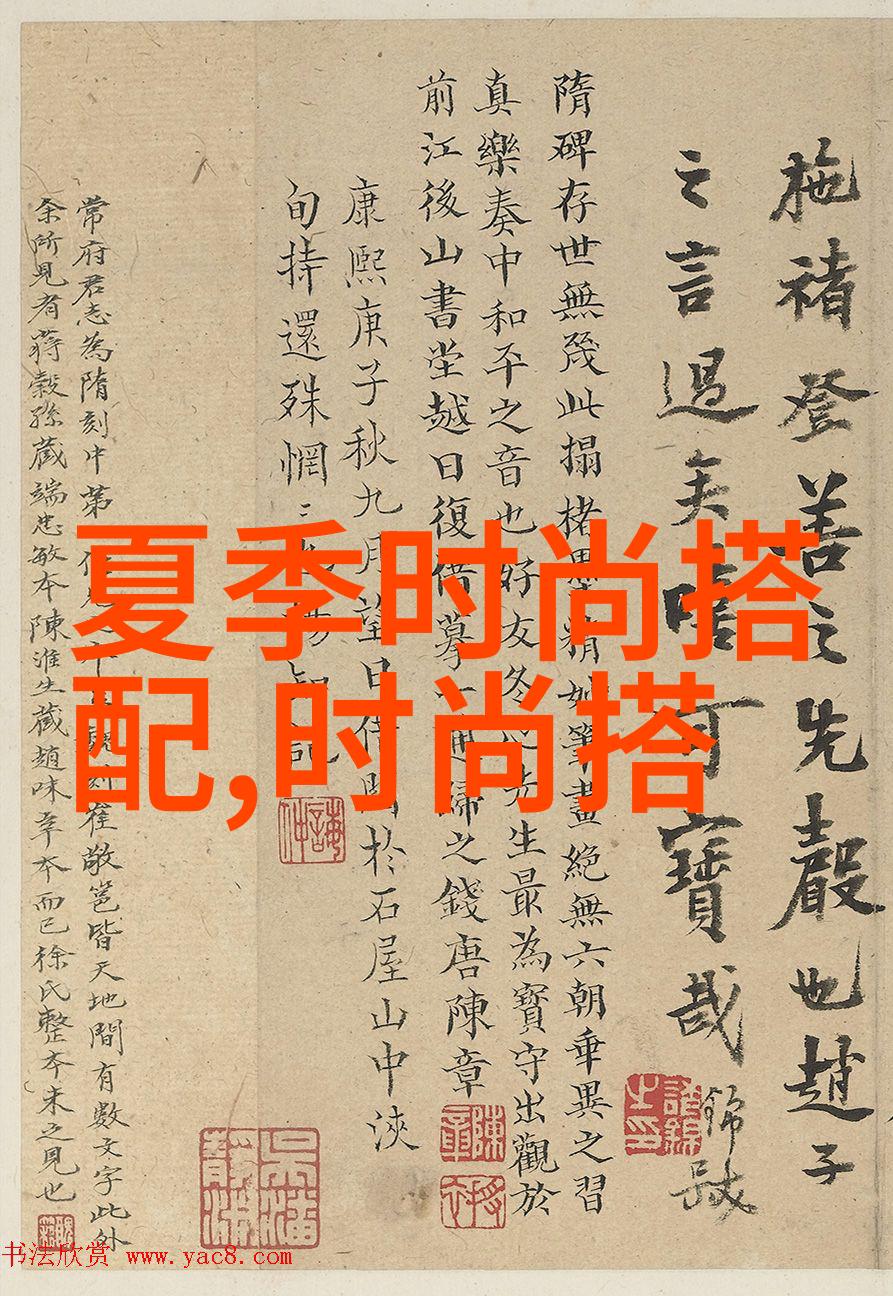 施褚登善之先聲也趙子
之言過矣 可寶哉
錦 
隋碑存世無幾此搨楮墨精妙筆畫絕無六朝垂異之習
真樂奏中和平之音也好友冬心先生最為寶守出觀於
前江後山書堂越日復借摹一通歸之錢唐陳章
康熙庚子秋九月望日借閱於石屋山中浹
旬持還殊惘
常府君志為隋刻中第一 崔敬邕皆天地間有數文字此外
余所見有蔣穀孫藏端忠敏本陳淮生藏趙味辛本而已徐氏整本未之見也
夏季时尚搭
配,时尚搭
书法欣赏 www.yac8.com